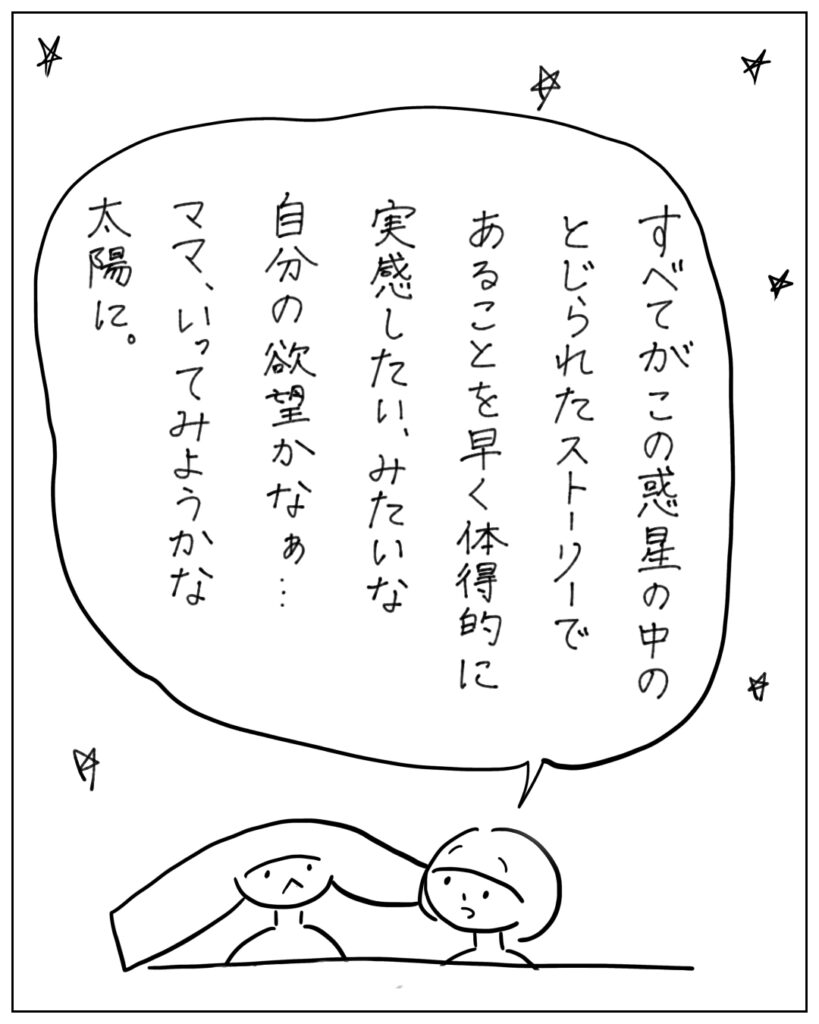 すべてがこの惑星の中の
とじられたストーリーで
あることを早く体得的に
実感したい、みたいな
自分の欲望かなぁ…
ママ、いってみようかな
太陽に。